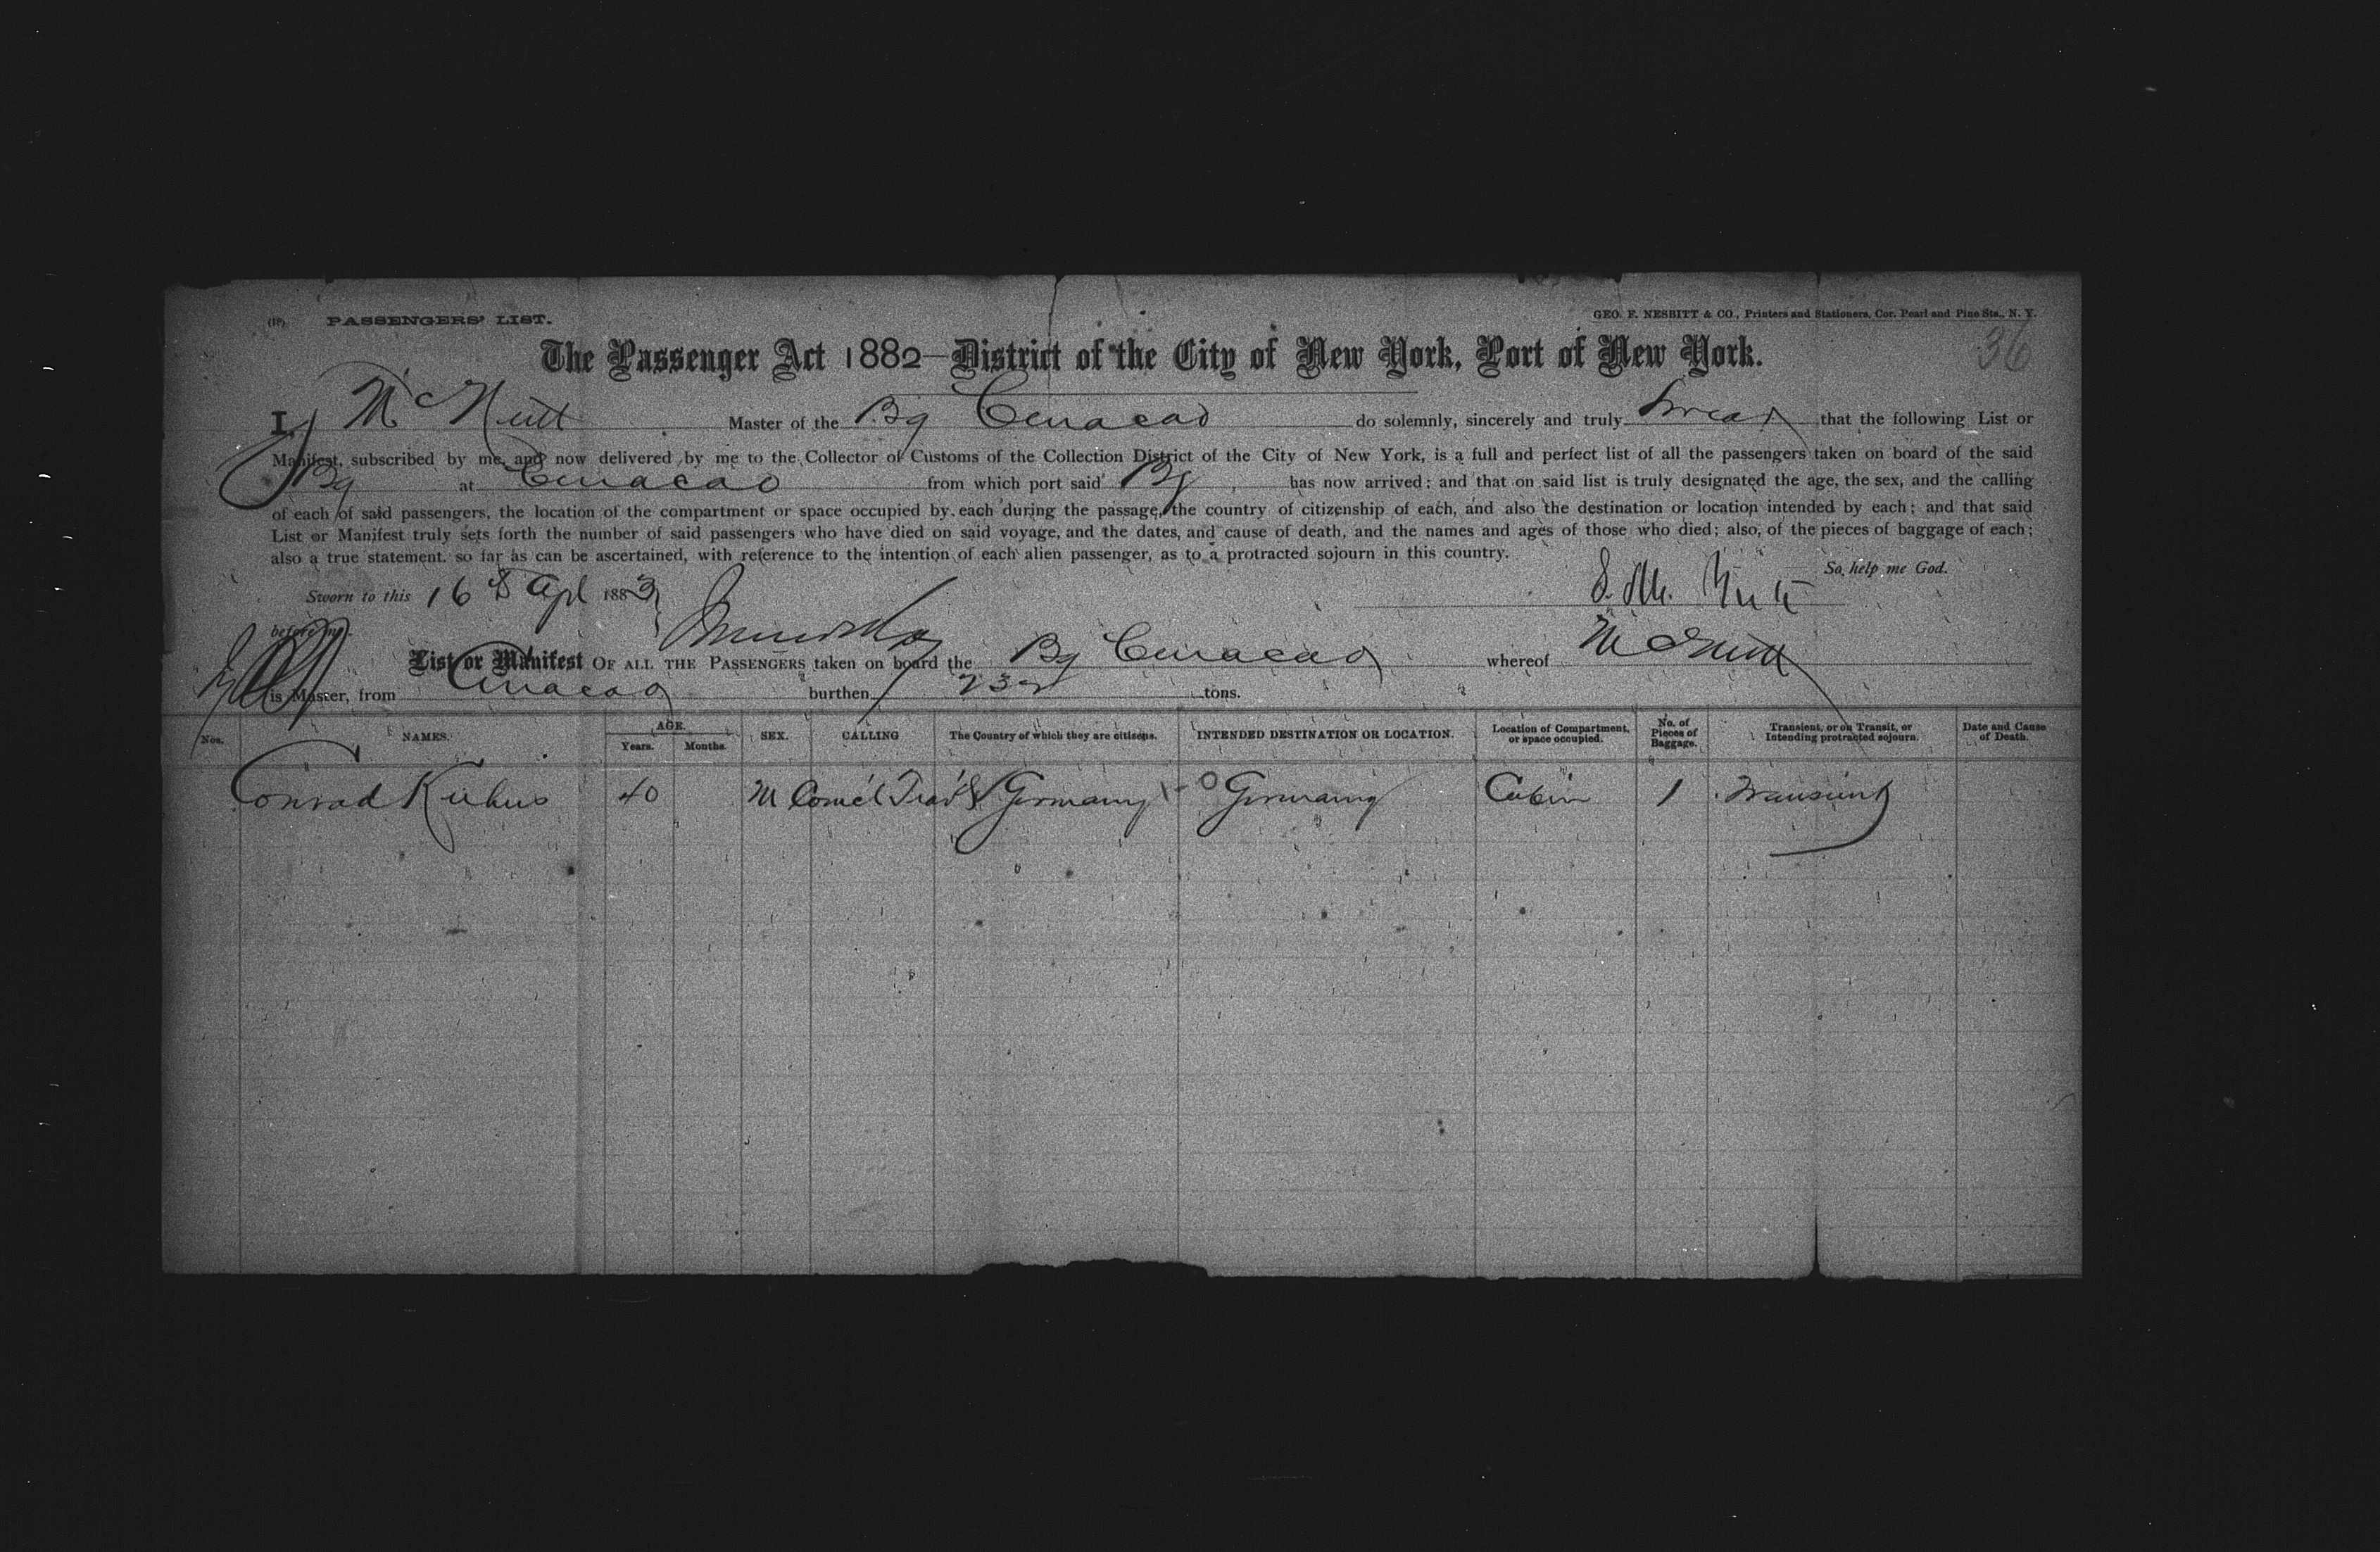 (10) PASSENGERS' LIST.
GEO. F. NESBITT & CO., Printers and Stationers, Cor. Pearl and Pine Sts., N. Y.
36
The Passenger Act 1882—District of the City of New York, Port of New York.
I, McNutt Master of the Bg Curacao do solemnly, sincerely and truly swear that the following List or
Manifest, subscribed by me, and now delivered by me to the Collector of Customs of the Collection District of the City of New York, is a full and perfect list of all the passengers taken on board of the said
Bg at Curacao from which port said Bg has now arrived; and that on said list is truly designated the age, the sex, and the calling
of each of said passengers, the location of the compartment or space occupied by each during the passage, the country of citizenship of each, and also the destination or location intended by each; and that said
List or Manifest truly sets forth the number of said passengers who have died on said voyage, and the dates, and cause of death, and the names and ages of those who died; also, of the pieces of baggage of each;
also a true statement, so far as can be ascertained, with reference to the intention of each alien passenger, as to a protracted sojourn in this country.
So help me God.
Sworn to this 16 Apl 1883
before me.
List or Manifest OF ALL THE PASSENGERS taken on board the Bg Curacao whereof McNutt
is Master, from Curacao burthen tons.
Nos. NAMES. AGE. Years. Months. SEX. CALLING The Country of which they are citizens. INTENDED DESTINATION OR LOCATION. Location of Compartment, or space occupied. No. of Pieces of Baggage. Transient, or on Transit, or Intending protracted sojourn. Date and Cause of Death.
Conrad 40 M Germany Germany Cabin 1 Transient